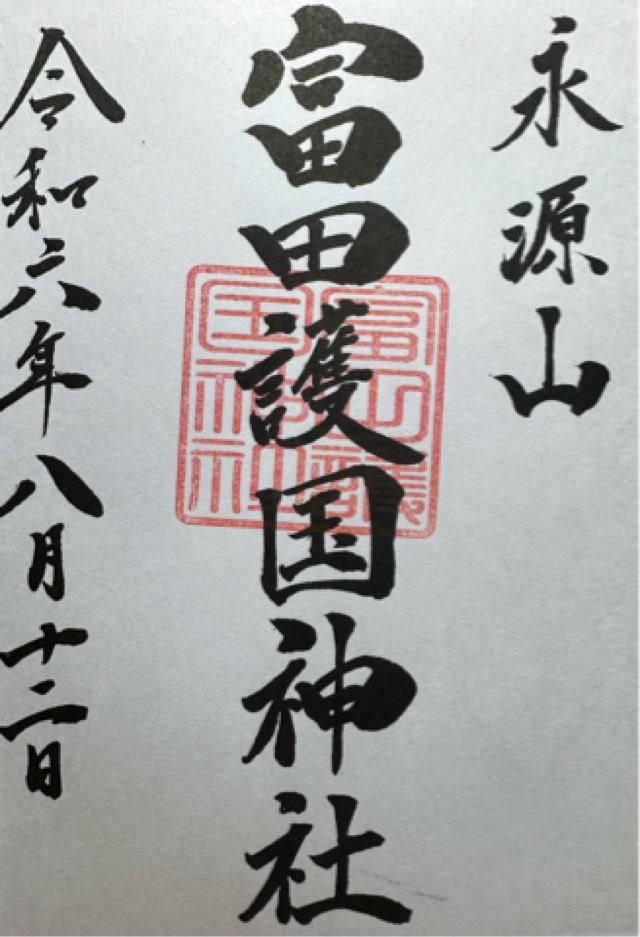 永源山
富田護国神社
令和六年八月十二日
富田護
国神社